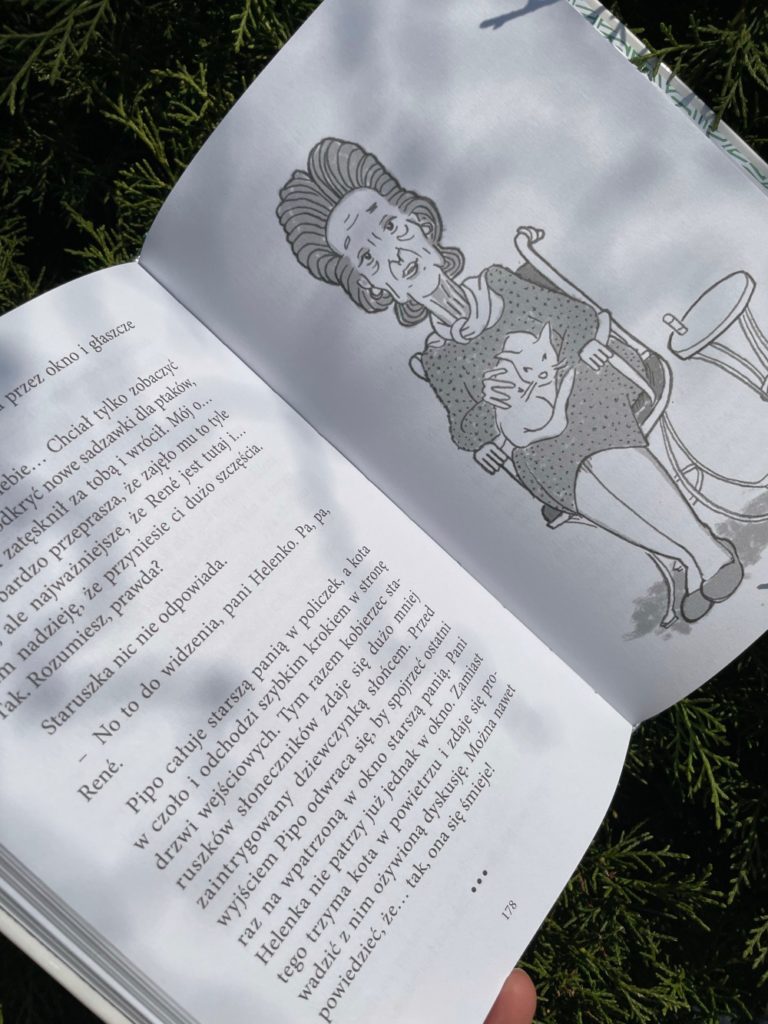 przez okno i głaszcze
ebie... Chciał tylko zobaczyć
odkryć nowe sadzawki dla ptaków,
zatęsknił za tobą i wrócił. Mój o...
bardzo przeprasza, że zajęło mu to tyle
ale najważniejsze, że René jest tutaj i...
m nadzieję, że przyniesie ci dużo szczęścia.
Tak. Rozumiesz, prawda?
Staruszka nic nie odpowiada.
– No to do widzenia, pani Helenko. Pa, pa,
René.
Pipo całuje starszą panią w policzek, a kota
w czoło i odchodzi szybkim krokiem w stronę
drzwi wejściowych. Tym razem kobierzec sta-
ruszków słoneczników zdaje się dużo mniej
zaintrygowany dziewczynką słońcem. Przed
wyjściem Pipo odwraca się, by spojrzeć ostatni
raz na wpatrzoną w okno starszą panią, Pani
Helenka nie patrzy już jednak w okno. Zamiast
tego trzyma kota w powietrzu i zdaje się pro-
wadzić z nim ożywioną dyskusję. Można nawet
powiedzieć, że... tak, ona się śmieje!
•••
178